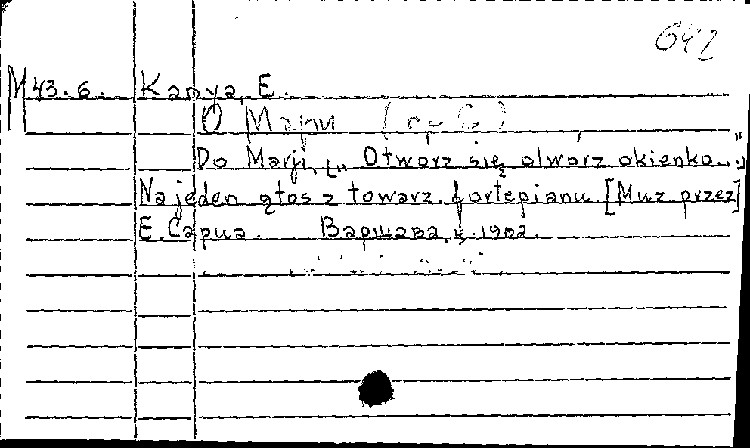 642
M 43.6. Kanya, E.
О Марии (op 6)
Do Marji, [„ Otwórz się otwórz okienko..."]
Na jeden głos z towarz. fortepianu. [Muz przez]
E. Capua. Варшава, 1902.